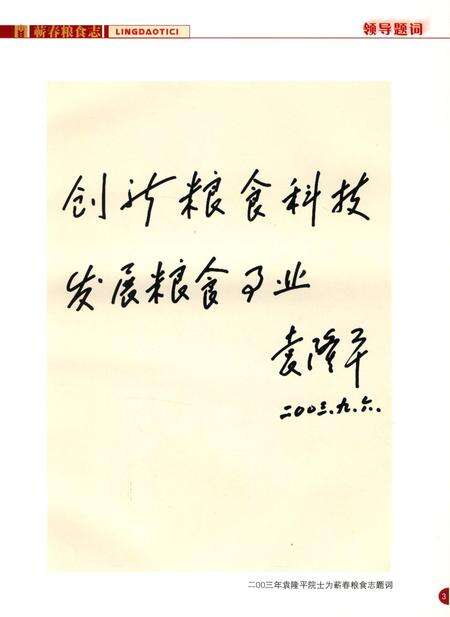 蕲春粮食志
LINGDAOTICI
领导题词
创新粮食科技
发展粮食事业
袁隆平
二00三.九.六.
二00三年袁隆平院士为蕲春粮食志题词
3